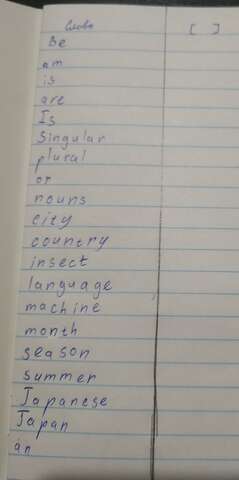 Слова [ ]
Be
am
is
are
Is
Singular
plural
or
nouns
city
country
insect
language
machine
month
season
summer
Japanese
Japan
an